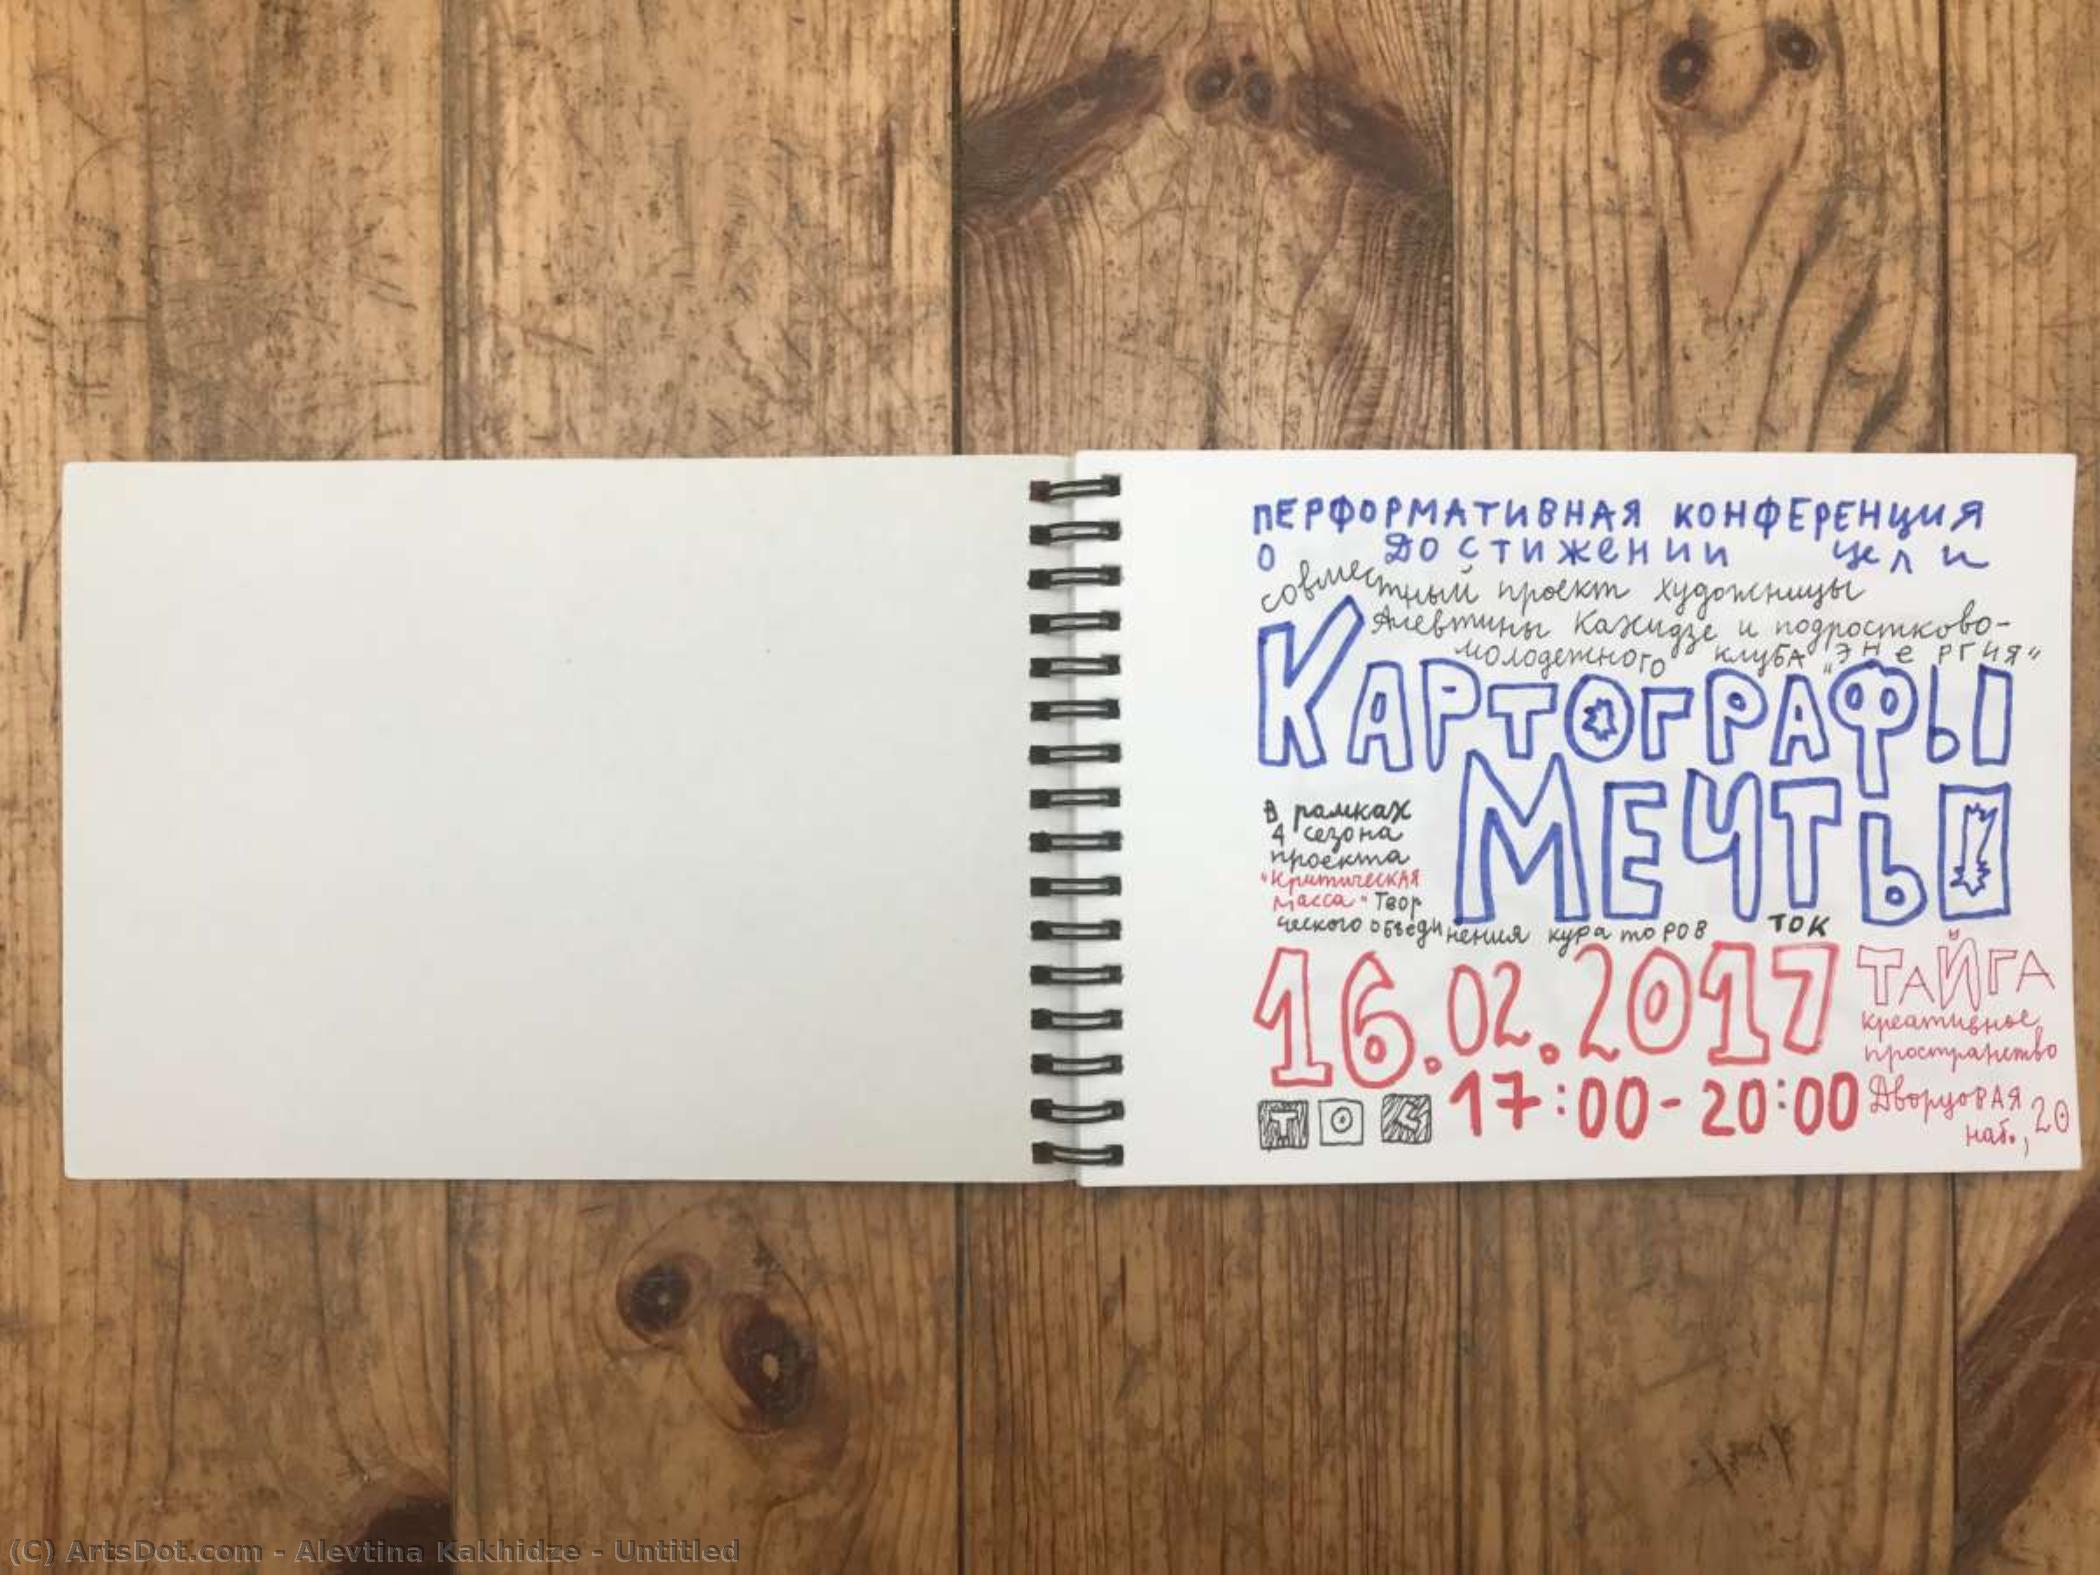 ПЕРФОРМАТИВНАЯ КОНФЕРЕНЦИЯ
О ДОСТИЖЕНИИ ЦЕЛИ
совместный проект художницы
Алевтины Кахидзе и подростково-
молодежного клуба "ЭНЕРГИЯ"
КАРТОГРАФЫ
МЕЧТЫ
В рамках
4 сезона
проекта
"Критическая
масса" Твор
ческого объединения кураторов ТОК
16.02.2017
17:00-20:00
ТАЙГА
креативное
пространство
Дворцовая
наб., 20
Т О К
(C) ArtsDot.com - Alevtina Kakhidze - Untitled